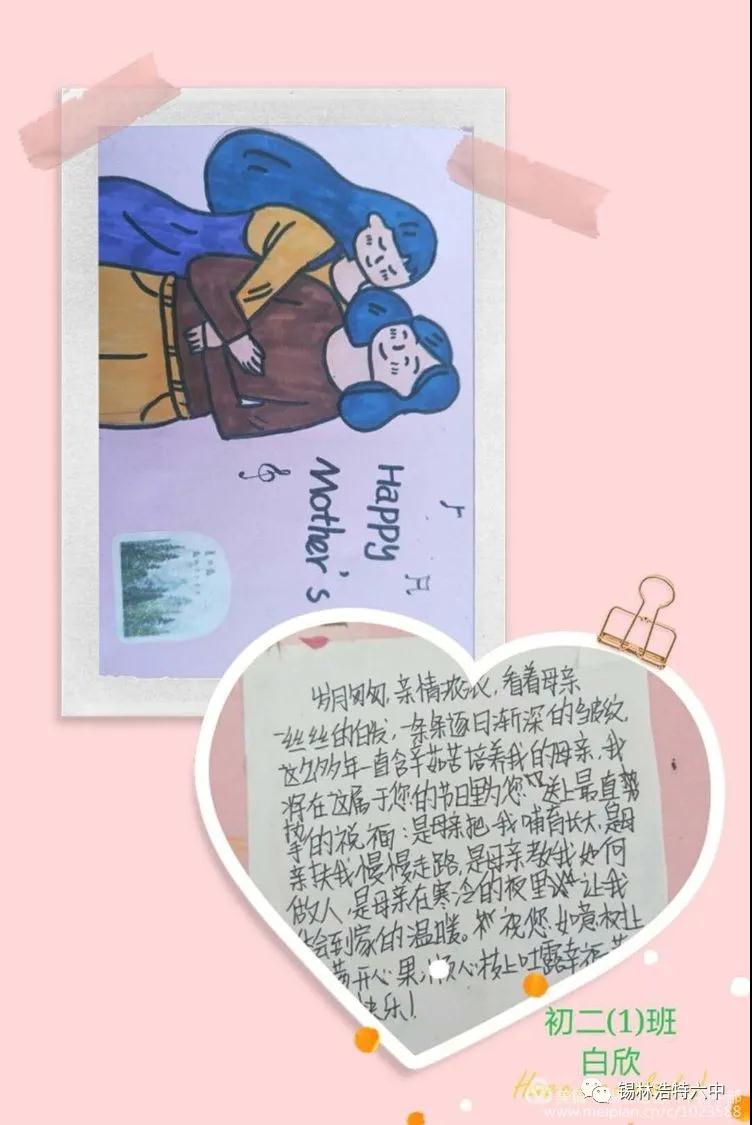 Happy
Mother's
岁月匆匆,亲情浓浓,看着母亲
一丝丝的白发,一条条逐日渐深的皱纹,
这么多年一直含辛茹苦培养我的母亲,我
将在这属于您的节日里为您送上最直
挚的祝福:是母亲把我哺育长大,是母
亲扶我慢慢走路,是母亲教我如何
做人,是母亲在寒冷的夜里让我
会到家的温暖。祝您如意树上
开心果,顺心枝上吐露幸福
快乐!
初二(1)班
白欣
锡林浩特六中
www.meipian.cn/c/1023588